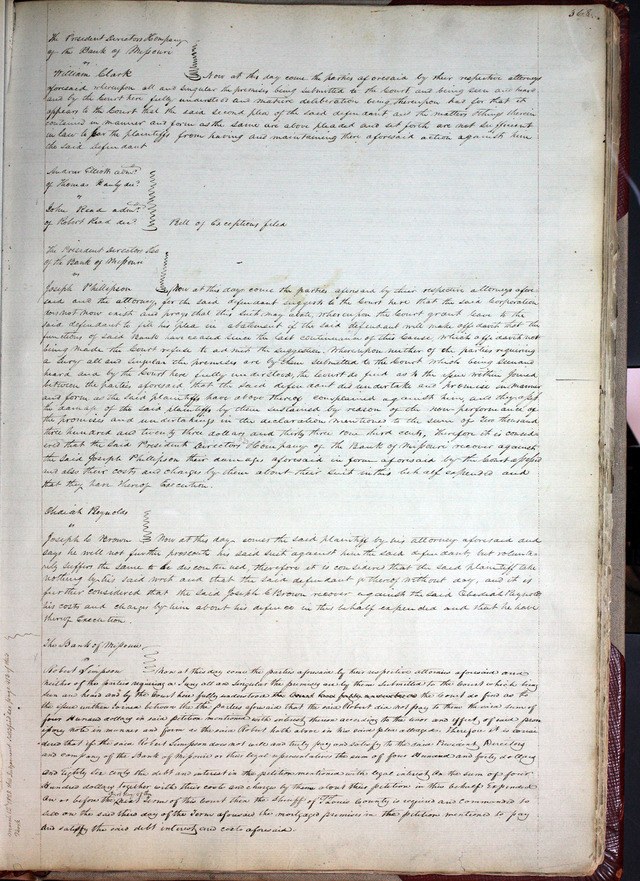 368.
The President Directors & Company
of the Bank of Missouri
vs
William Clark Now at this day come the parties aforesaid by their respective attorneys
aforesaid whereupon all and singular the premises being submitted to the Court, and being seen and
and by the Court here fully understood and mature deliberation being thereupon had for that it
appears to the Court that the said second plea of the said defendant and the matters & things therein
contained in manner and form as the same are above pleaded and set forth are not sufficient
in law to bar the plaintiffs from having and maintaining their aforesaid action against him
the said defendant
Andrew Elliott admr.
of Thomas Hanly decd.
vs
John Read admr.
of Robert Read decd. Bill of Exceptions filed
The President Directors &co
of the Bank of Missouri
vs
Joseph Philipson Now at this day come the parties aforesaid by their respective attorneys afore
said and the attorney for the said defendant suggests to the Court here that the said Corporation
does not now exist and prays that this suit may abate, whereupon the Court grant leave to the
said defendant to file his plea in abatement if the said defendant will make affidavit that the
functions of said Bank have ceased since the last continuation of this Cause, which affidavit not
being made the Court refuse to admit the suggestion. Whereupon neither of the parties requiring
a Jury all and singular the premises are by them submitted to the Court which being seen and
heard and by the Court here fully understood, the Court do find as to the issue within joined
between the parties aforesaid that the said defendant did undertake and promise in manner
and form as the said plaintiffs have above thereof complained against him, and they assess
the damages of the said plaintiffs by them sustained by reason of the non performance of
the promises and undertakings in the declaration mentioned to the sum of two thousand
three hundred and twenty three dollars and thirty three one third cents, therefore it is consid
ered that the said President Directors & Company of the Bank of Missouri recover against
the said Joseph Philipson their damages aforesaid in form aforesaid by the Court assessed
and also their costs and charges by them about their suit in this behalf expended and
that they have thereof Execution.
Obediah Reynolds
vs
Joseph C Brown Now at this day comes the said plaintiff by his attorney aforesaid and
says he will not further prosecute his said suit against him the said defendant, but volunta
rily suffers the same to be discontinued, therefore it is considered that the said plaintiff take
nothing by his said writ and that the said defendant go thereof without day, and it is
further considered that the said Joseph C Brown recover against the said Obediah Reynolds
his costs and charges by him about his defence in this behalf expended and that he have
thereof Execution.
The Bank of Missouri
vs
Robert Simpson Now at this day come the parties aforesaid by their respective attornies aforesaid and
neither of the parties requiring a Jury all and singular the premises are by them submitted to the Court which being
seen and heard and by the Court here fully understood the Court do find as to
the issue within Joined between the parties aforesaid that the said Robert did not pay to them the said sum of
four Hundred dollars in said petition mentioned with interest thereon according to the tenor and effect of said prom
issory note in manner and form as the said Robert hath above in his said plea alledged. Therefore it is consid
ered that if the said Robert Simpson does not well and truly pay and satisfy to the said President, Directors
and company of the Bank of Missouri or their legal representatives the sum of four Hundred and forty dollars
and Eighty six cents the debt and interest in the petition mentioned with legal interest on the sum of four
Hundred dollars together with their costs and charges by them about their petition in this behalf Expended
on or before the first day of the next Term of this Court then the Sheriff of St Louis County is required and commanded to
sell on the said third day of the Term aforesaid the mortgaged premises in the petition mentioned to pay
and satisfy the said debt interest and costs aforesaid.